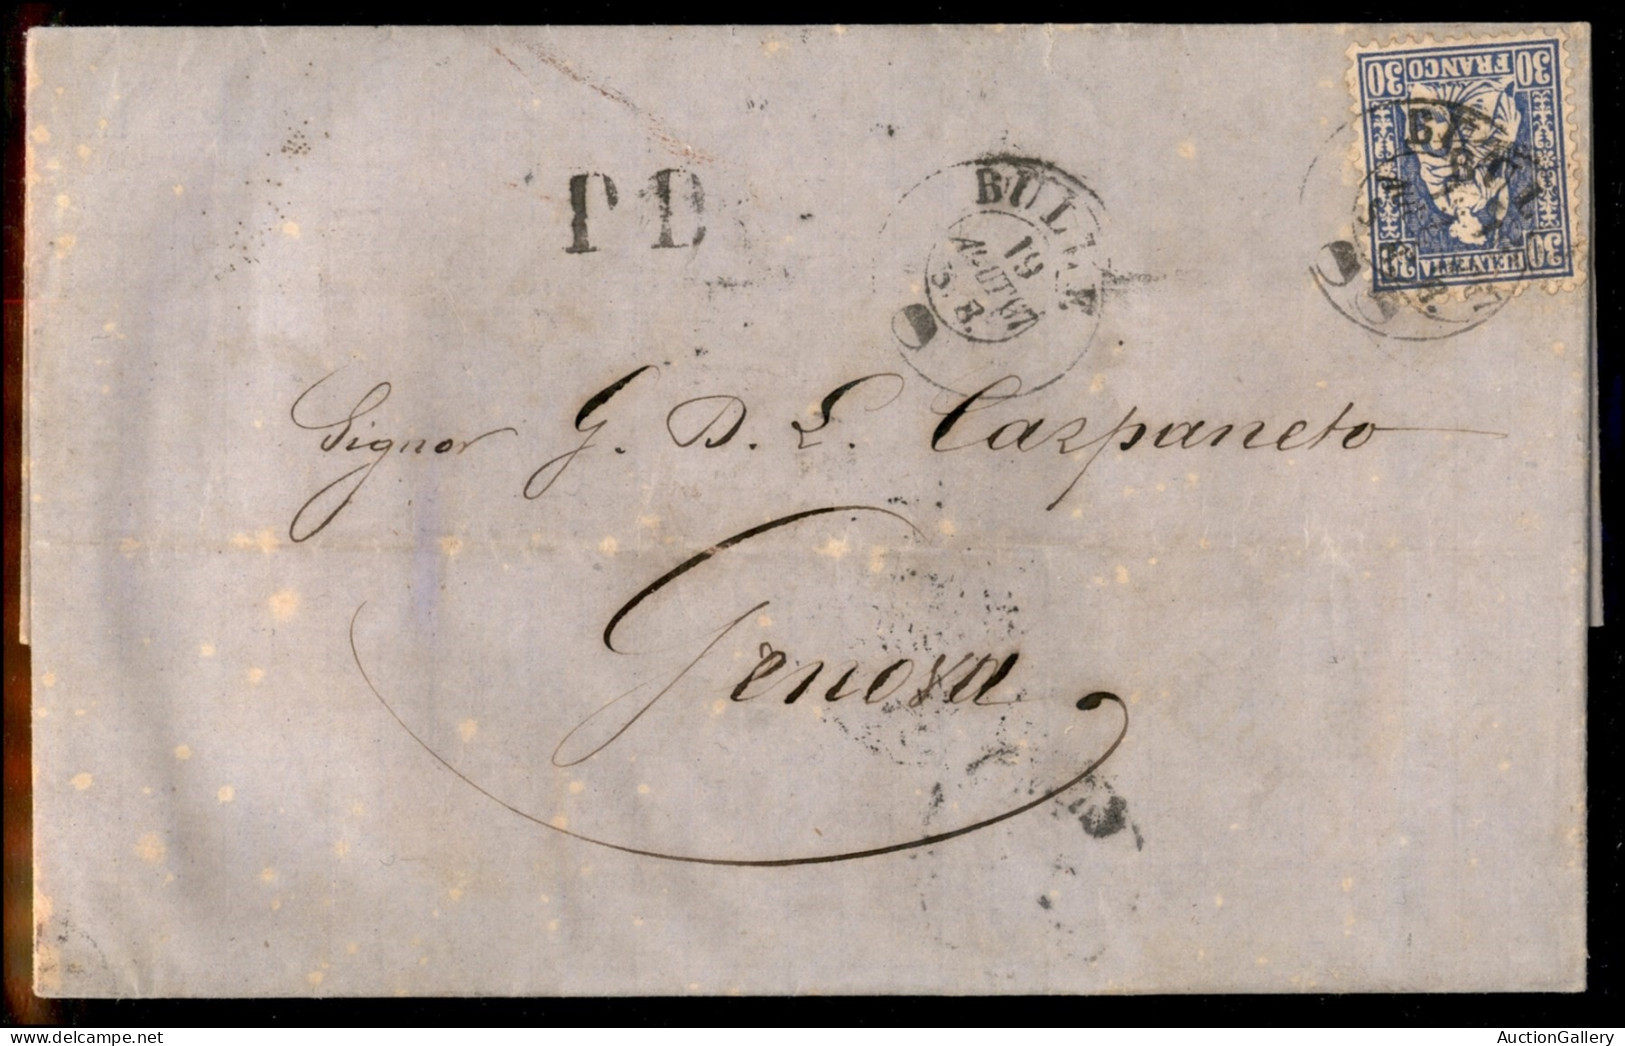 30 FRANCO 30
30 HELVETIA 30
P D
BULLE
19
AOUT 67
3. B.
Signor G. B. L. Carpaneto
Genova
AuctionGallery